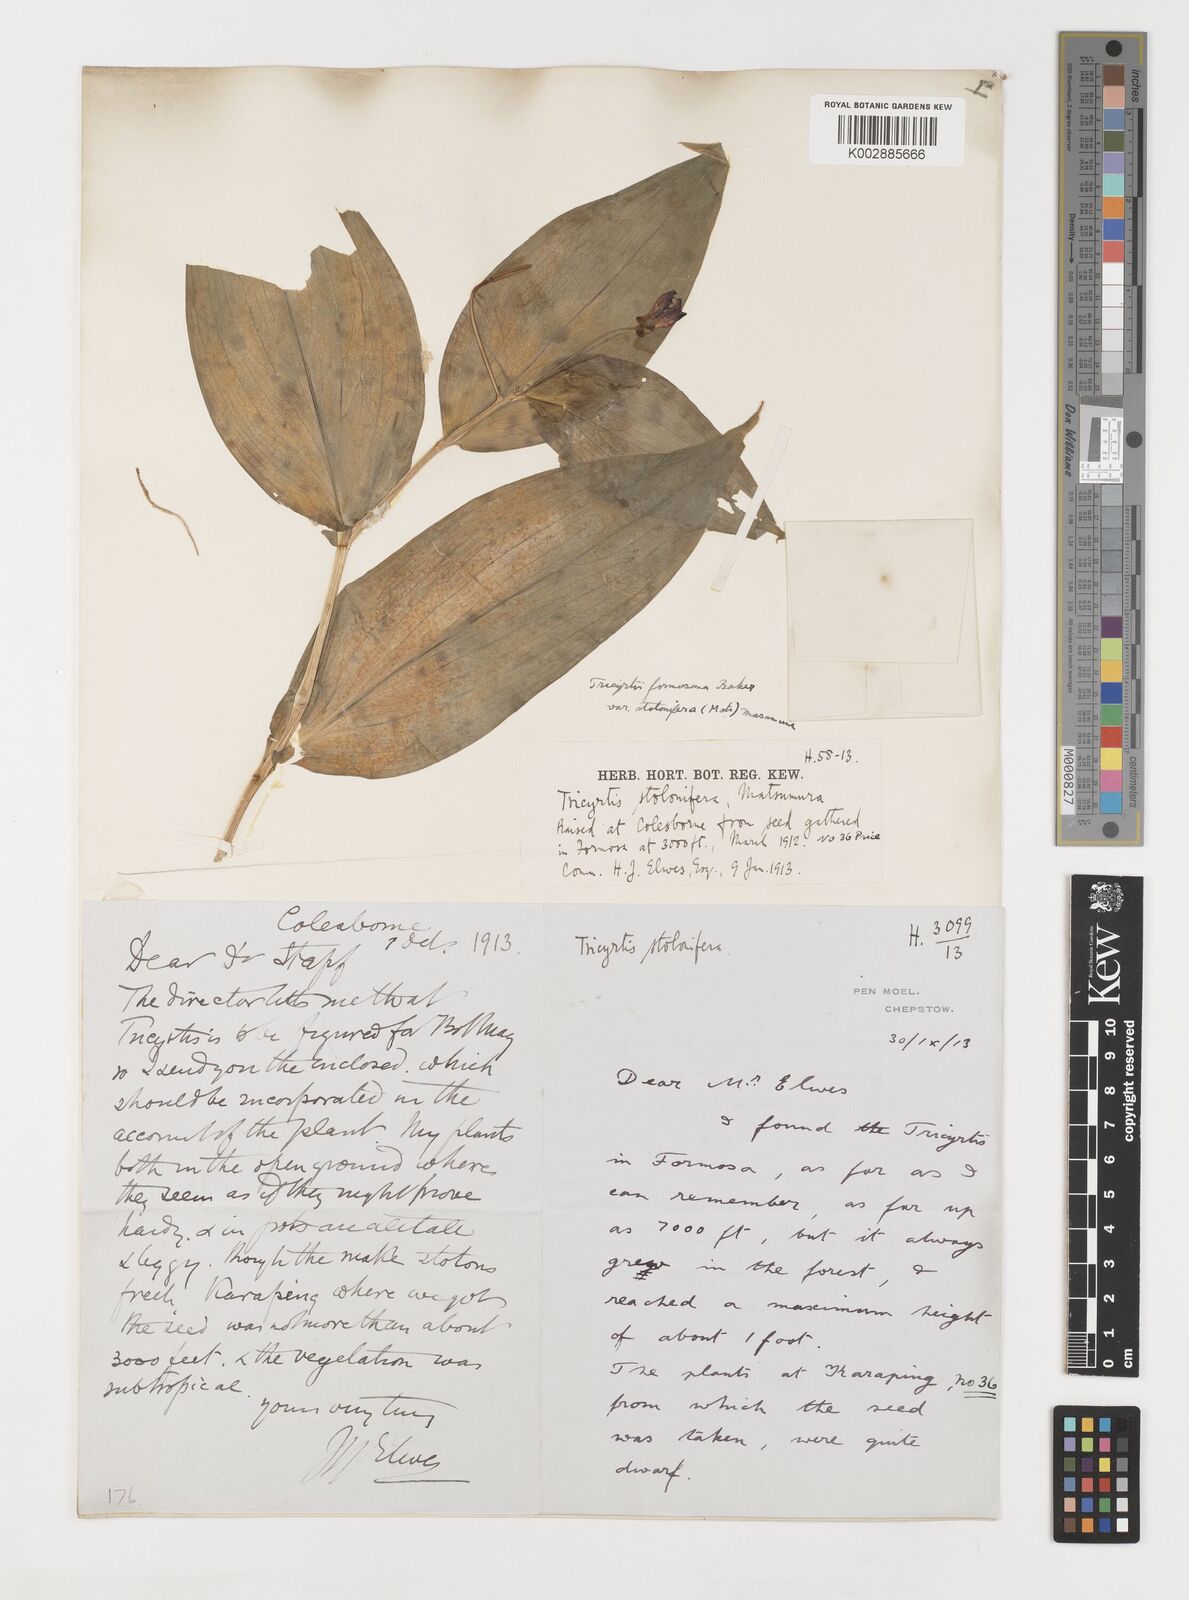 ROYAL BOTANIC GARDENS KEW
K002885666
Tricyrtis formosana Baker
var. stolonifera (Mats) Masamune
H. 58-13.
HERB. HORT. BOT. REG. KEW.
Tricyrtis stolonifera, Matsumura
Raised at Colesborne from seed gathered
in Formosa at 3000 ft., March 1912. No 36 Price
Comm. H. J. Elwes, Esq., 9 Jun. 1913.
Colesborne
1913.
Dear Dr Stapf
The director tells me that
Tricyrtis is to be figured for Bot Mag
so I send you the enclosed. which
should be incorporated in the
account of the plant. My plants
both in the open ground where
they seem as if they might prove
hardy. & in pots are all tall
& leggy. though the make stolons
freely Karapeng where we got
the seed was not more than about
3000 feet. & the vegetation was
subtropical
yours very truly
HJ Elwes
176
Tricyrtis stolonifera
H. 3099/13
PEN MOEL.
CHEPSTOW.
30/IX/13
Dear Mr. Elwes
I found the Tricyrtis
in Formosa, as far as I
can remember, as far up
as 7000 ft, but it always
grew in the forest, &
reached a maximum height
of about 1 foot.
The plants at Karaping, No 36
from which the seed
was taken, were quite
dwarf.
inches
Density
Don Williams
M000827
Royal Botanic Gardens
Kew
copyright reserved
0 1 2 3 4 5 6 7 8 9 10
cm